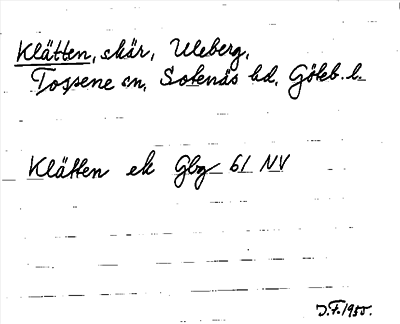 Klätten, skär, Uleberg,
Tossene sn, Sotenäs hd, Göteb. l.
Klätten ek Gbg 61 NV
J.F. 1955.